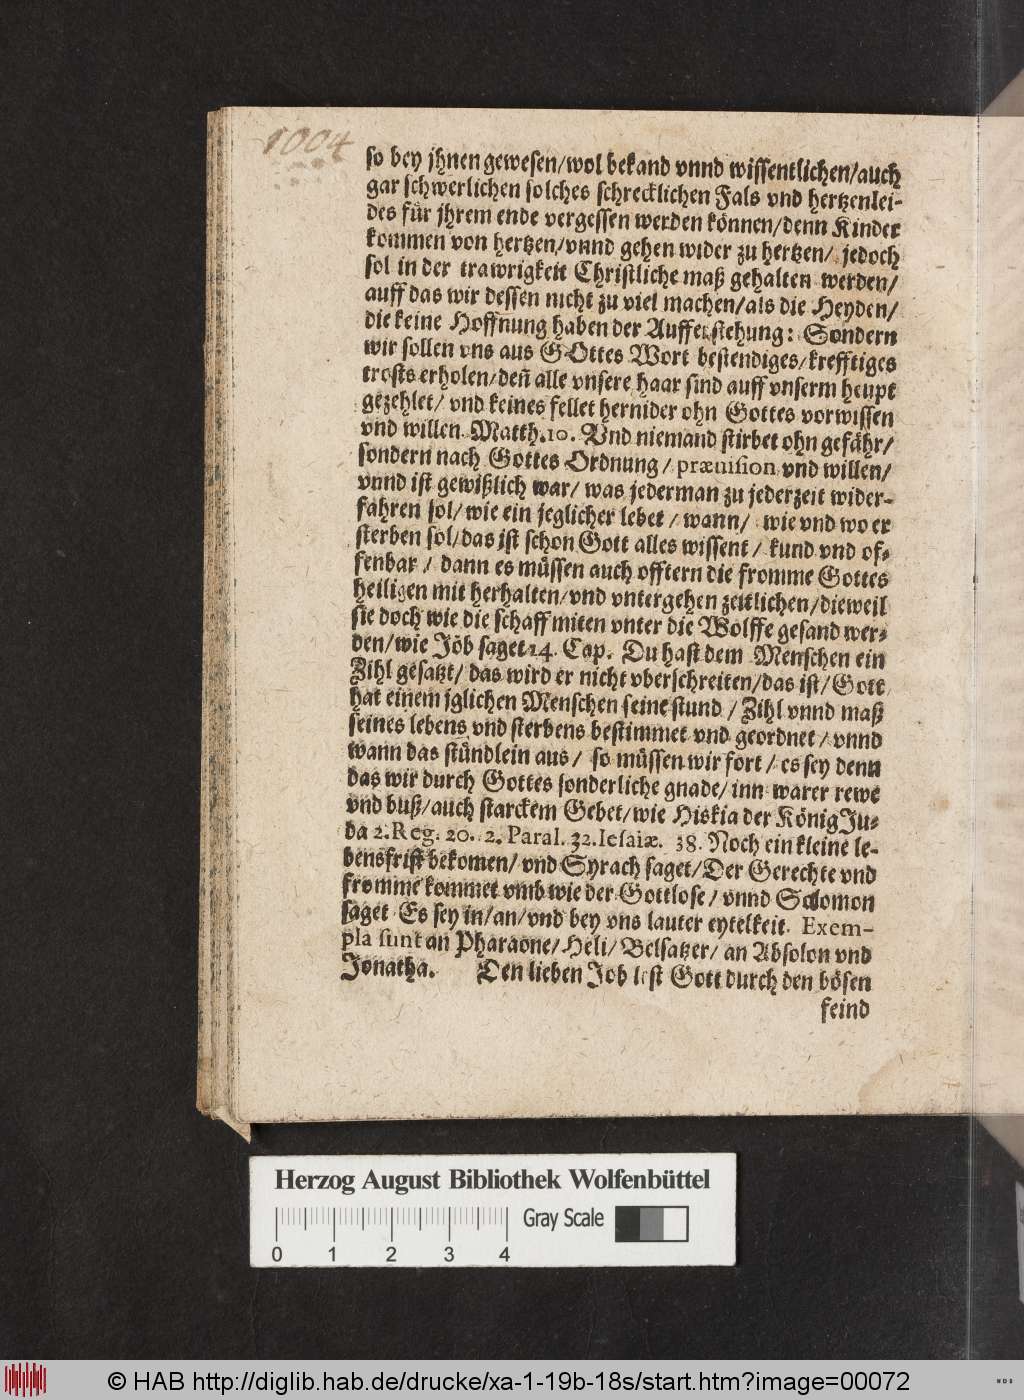 1004
so bey jhnen gewesen/wol bekand vnnd wissentlichen/auch
gar schwerlichen solches schrecklichen Fals vnd hertzenlei-
des für jhrem ende vergessen werden können/denn Kinder
kommen von hertzen/vnnd gehen wider zu hertzen/ jedoch
sol in der trawrigkeit Christliche maß gehalten werden/
auff das wir dessen nicht zu viel machen/als die Heyden/
die keine Hoffnung haben der Aufferstehung: Sondern
wir sollen vns aus GOttes Wort bestendiges/krefftiges
trosts erholen/deñ alle vnsere haar sind auff vnserm heupt
gezehlet/ vnd keines fellet hernider ohn Gottes vorwissen
vnd willen Matth.10. Vnd niemand stirbet ohn gefähr/
sondern nach Gottes Ordnung/ præuision vnd willen/
vnnd ist gewißlich war/ was jederman zu jederzeit wider-
fahren sol/ wie ein jeglicher lebet / wann/ wie vnd wo er
sterben sol/das ist schon Gott alles wissent / kund vnd of-
fenbar / dann es müssen auch offtern die fromme Gottes
heiligen mit herhalten/vnd vntergehen zeitlichen/dieweil
sie doch wie die schaff miten vnter die Wolffe gesand wer-
den/wie Jöb saget 14. Cap. Du hast dem Menschen ein
Zihl gesatzt/ das wird er nicht vberschreiten/das ist/ Gott
hat einem jglichen Menschen seine stund / Zihl vnnd maß
seines lebens vnd sterbens bestimmet vnd geordnet / vnnd
wann das stündlein aus / so müssen wir fort / es sey denn
das wir durch Gottes sonderliche gnade/ inn warer rewe
vnd buß/auch starckem Gebet/wie Hiskia der König Ju-
da 2.Reg. 20. 2. Paral. 32.Iesaiæ. 38. Noch ein kleine le-
bensfrist bekomen/ vnd Syrach saget/Der Gerechte vnd
fromme kommet vmb wie der Gottlose / vnnd Salomon
saget Es sey in/an/vnd bey vns lauter eytelkeit. Exem-
pla sunt an Pharaone/ Heli/ Belsatzer/ an Absolon vnd
Jonatha. Den lieben Job lest Gott durch den bösen
feind
Herzog August Bibliothek Wolfenbüttel
Gray Scale
0 1 2 3 4
© HAB http://diglib.hab.de/drucke/xa-1-19b-18s/start.htm?image=00072